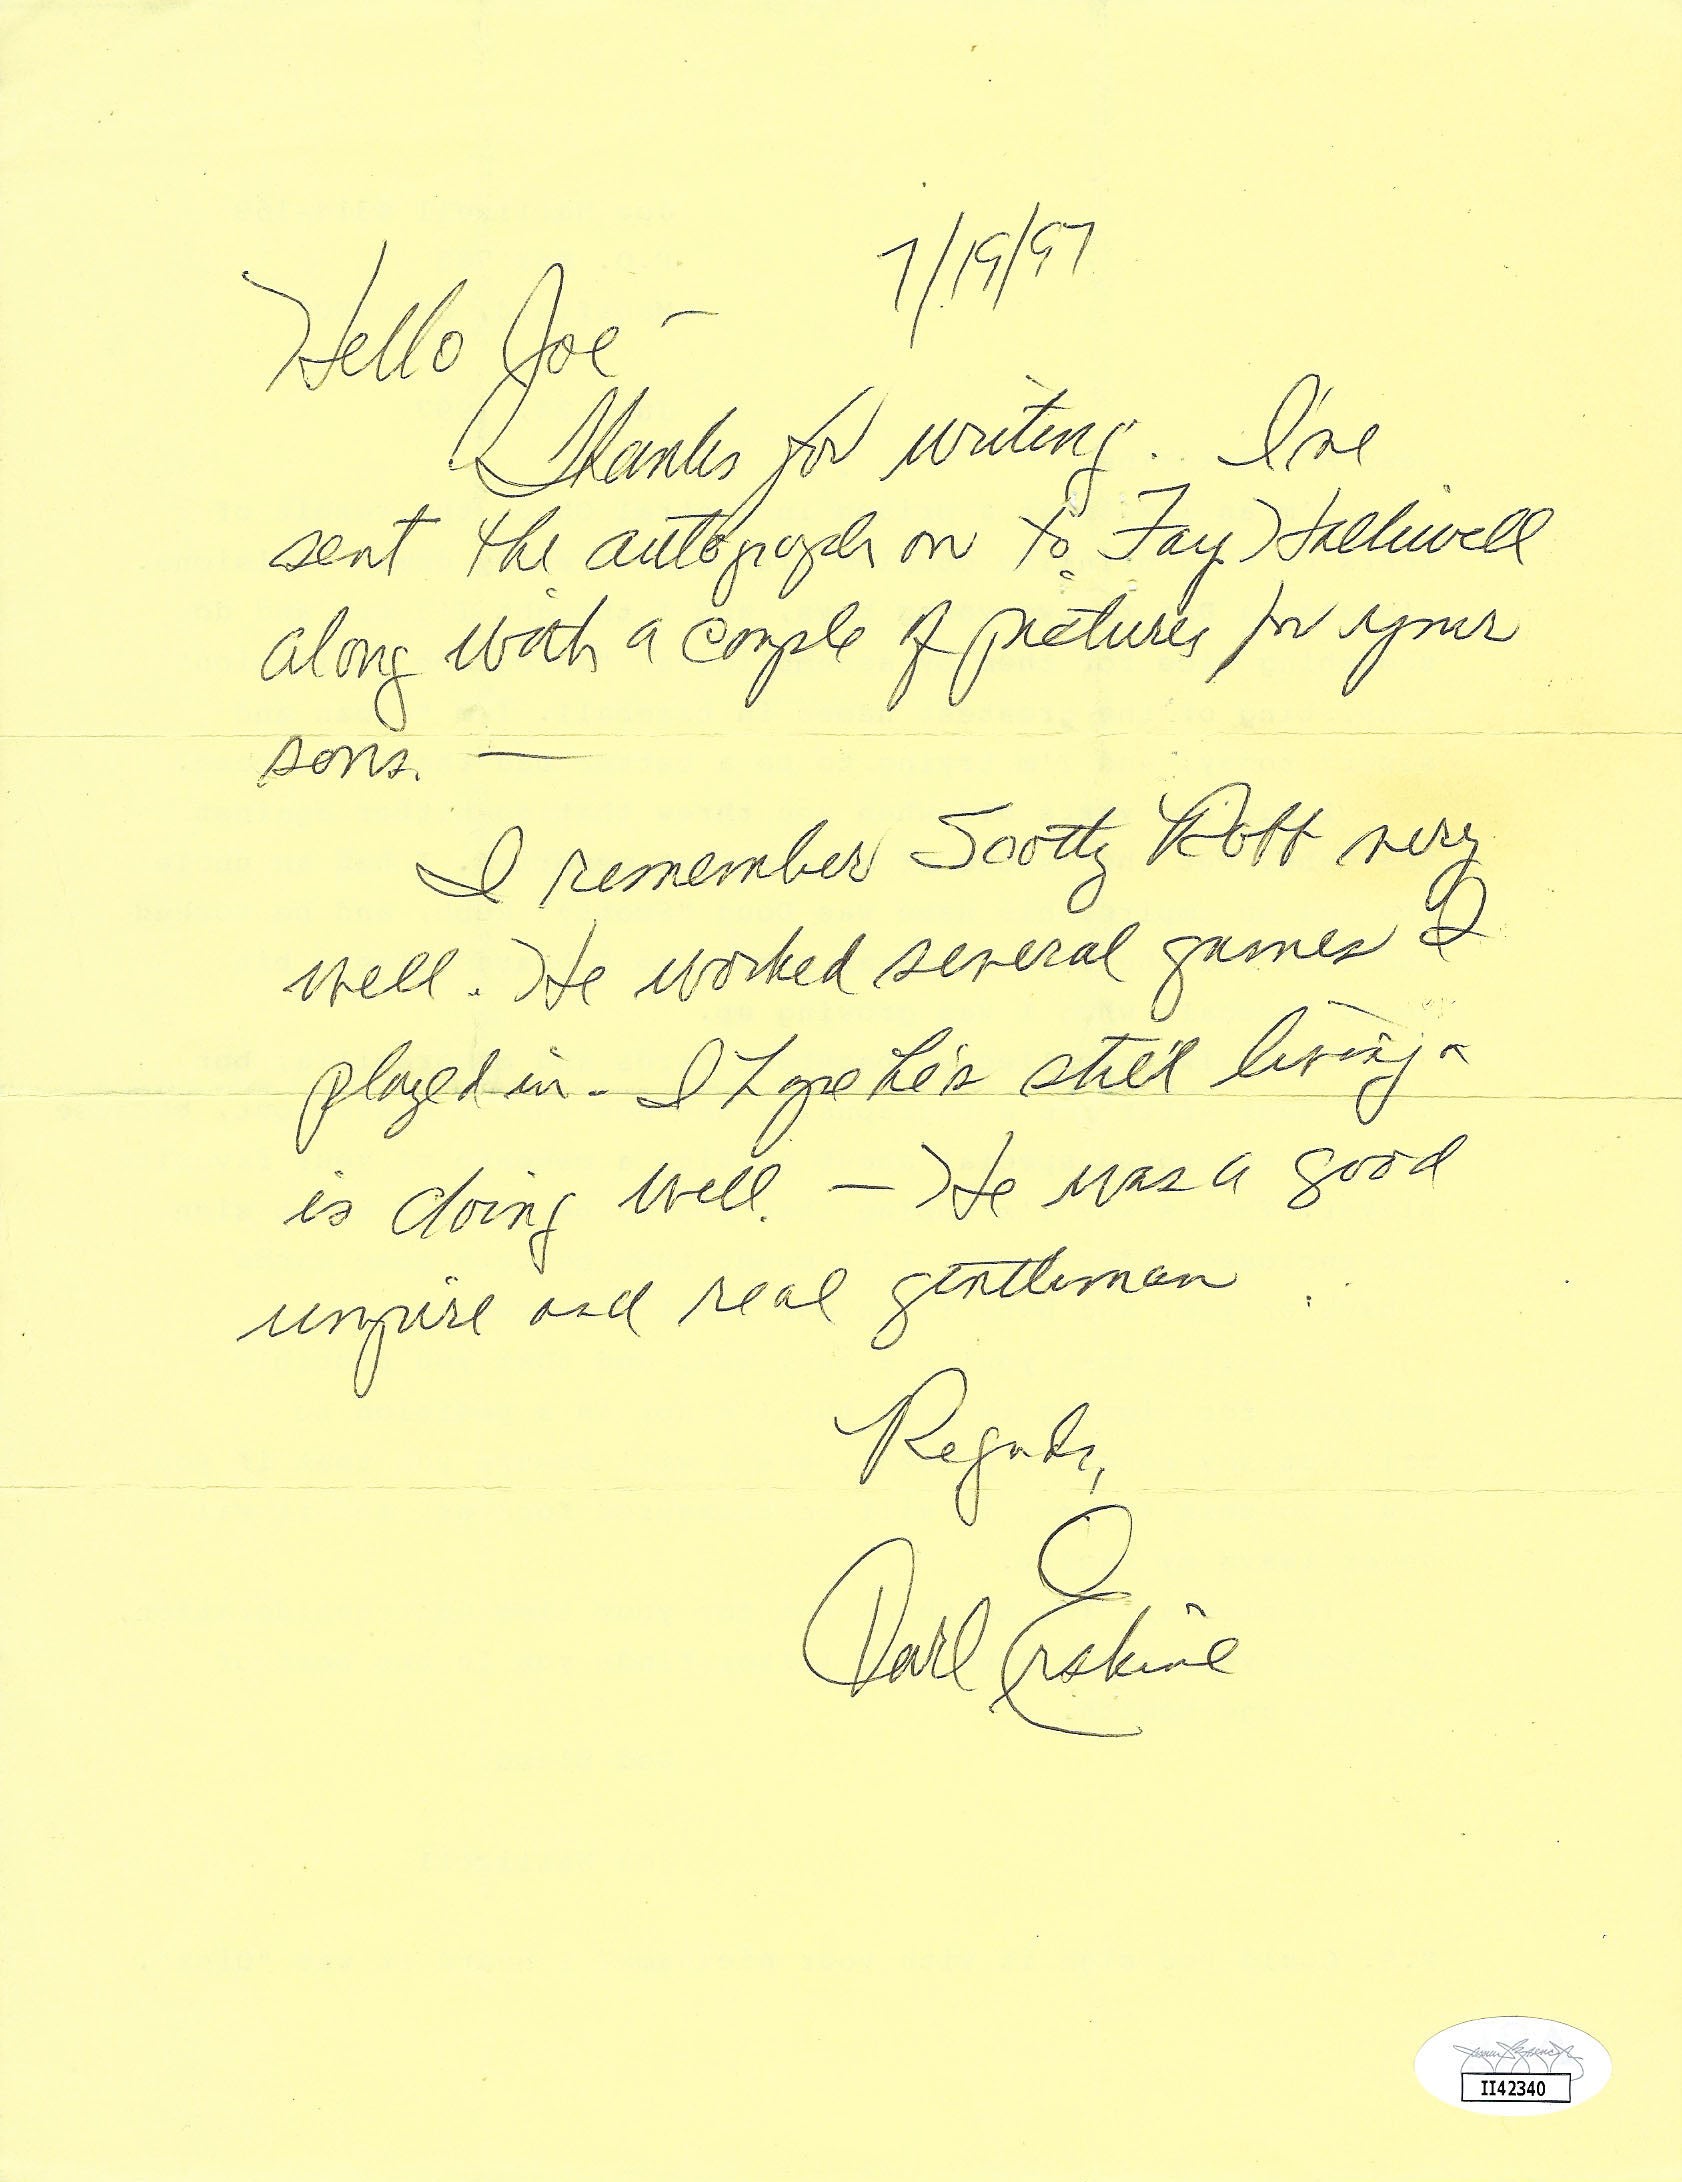 7/19/97
Hello Joe –
Thanks for writing. I've
sent the autograph on to Fay Halliwell
along with a couple of pictures for your
sons. —
I remember Scotty Robb very
well. He worked several games I
played in - I hope he's still living &
is doing well. — He was a good
umpire and real gentleman.
Regards,
Carl Erskine
II42340